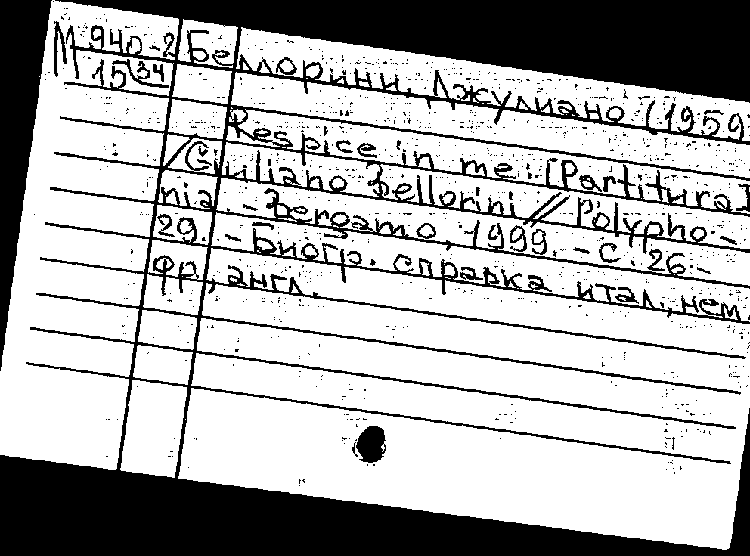 М 940-2
15 34
Беллорини, Джулиано (1959
Respice in me: [Partitura]
/ Giuliano Bellorini // Polypho-
nia. - Bergamo, 1999. - С. 26-
29. - Биогр. справка итал., нем.
фр., англ.